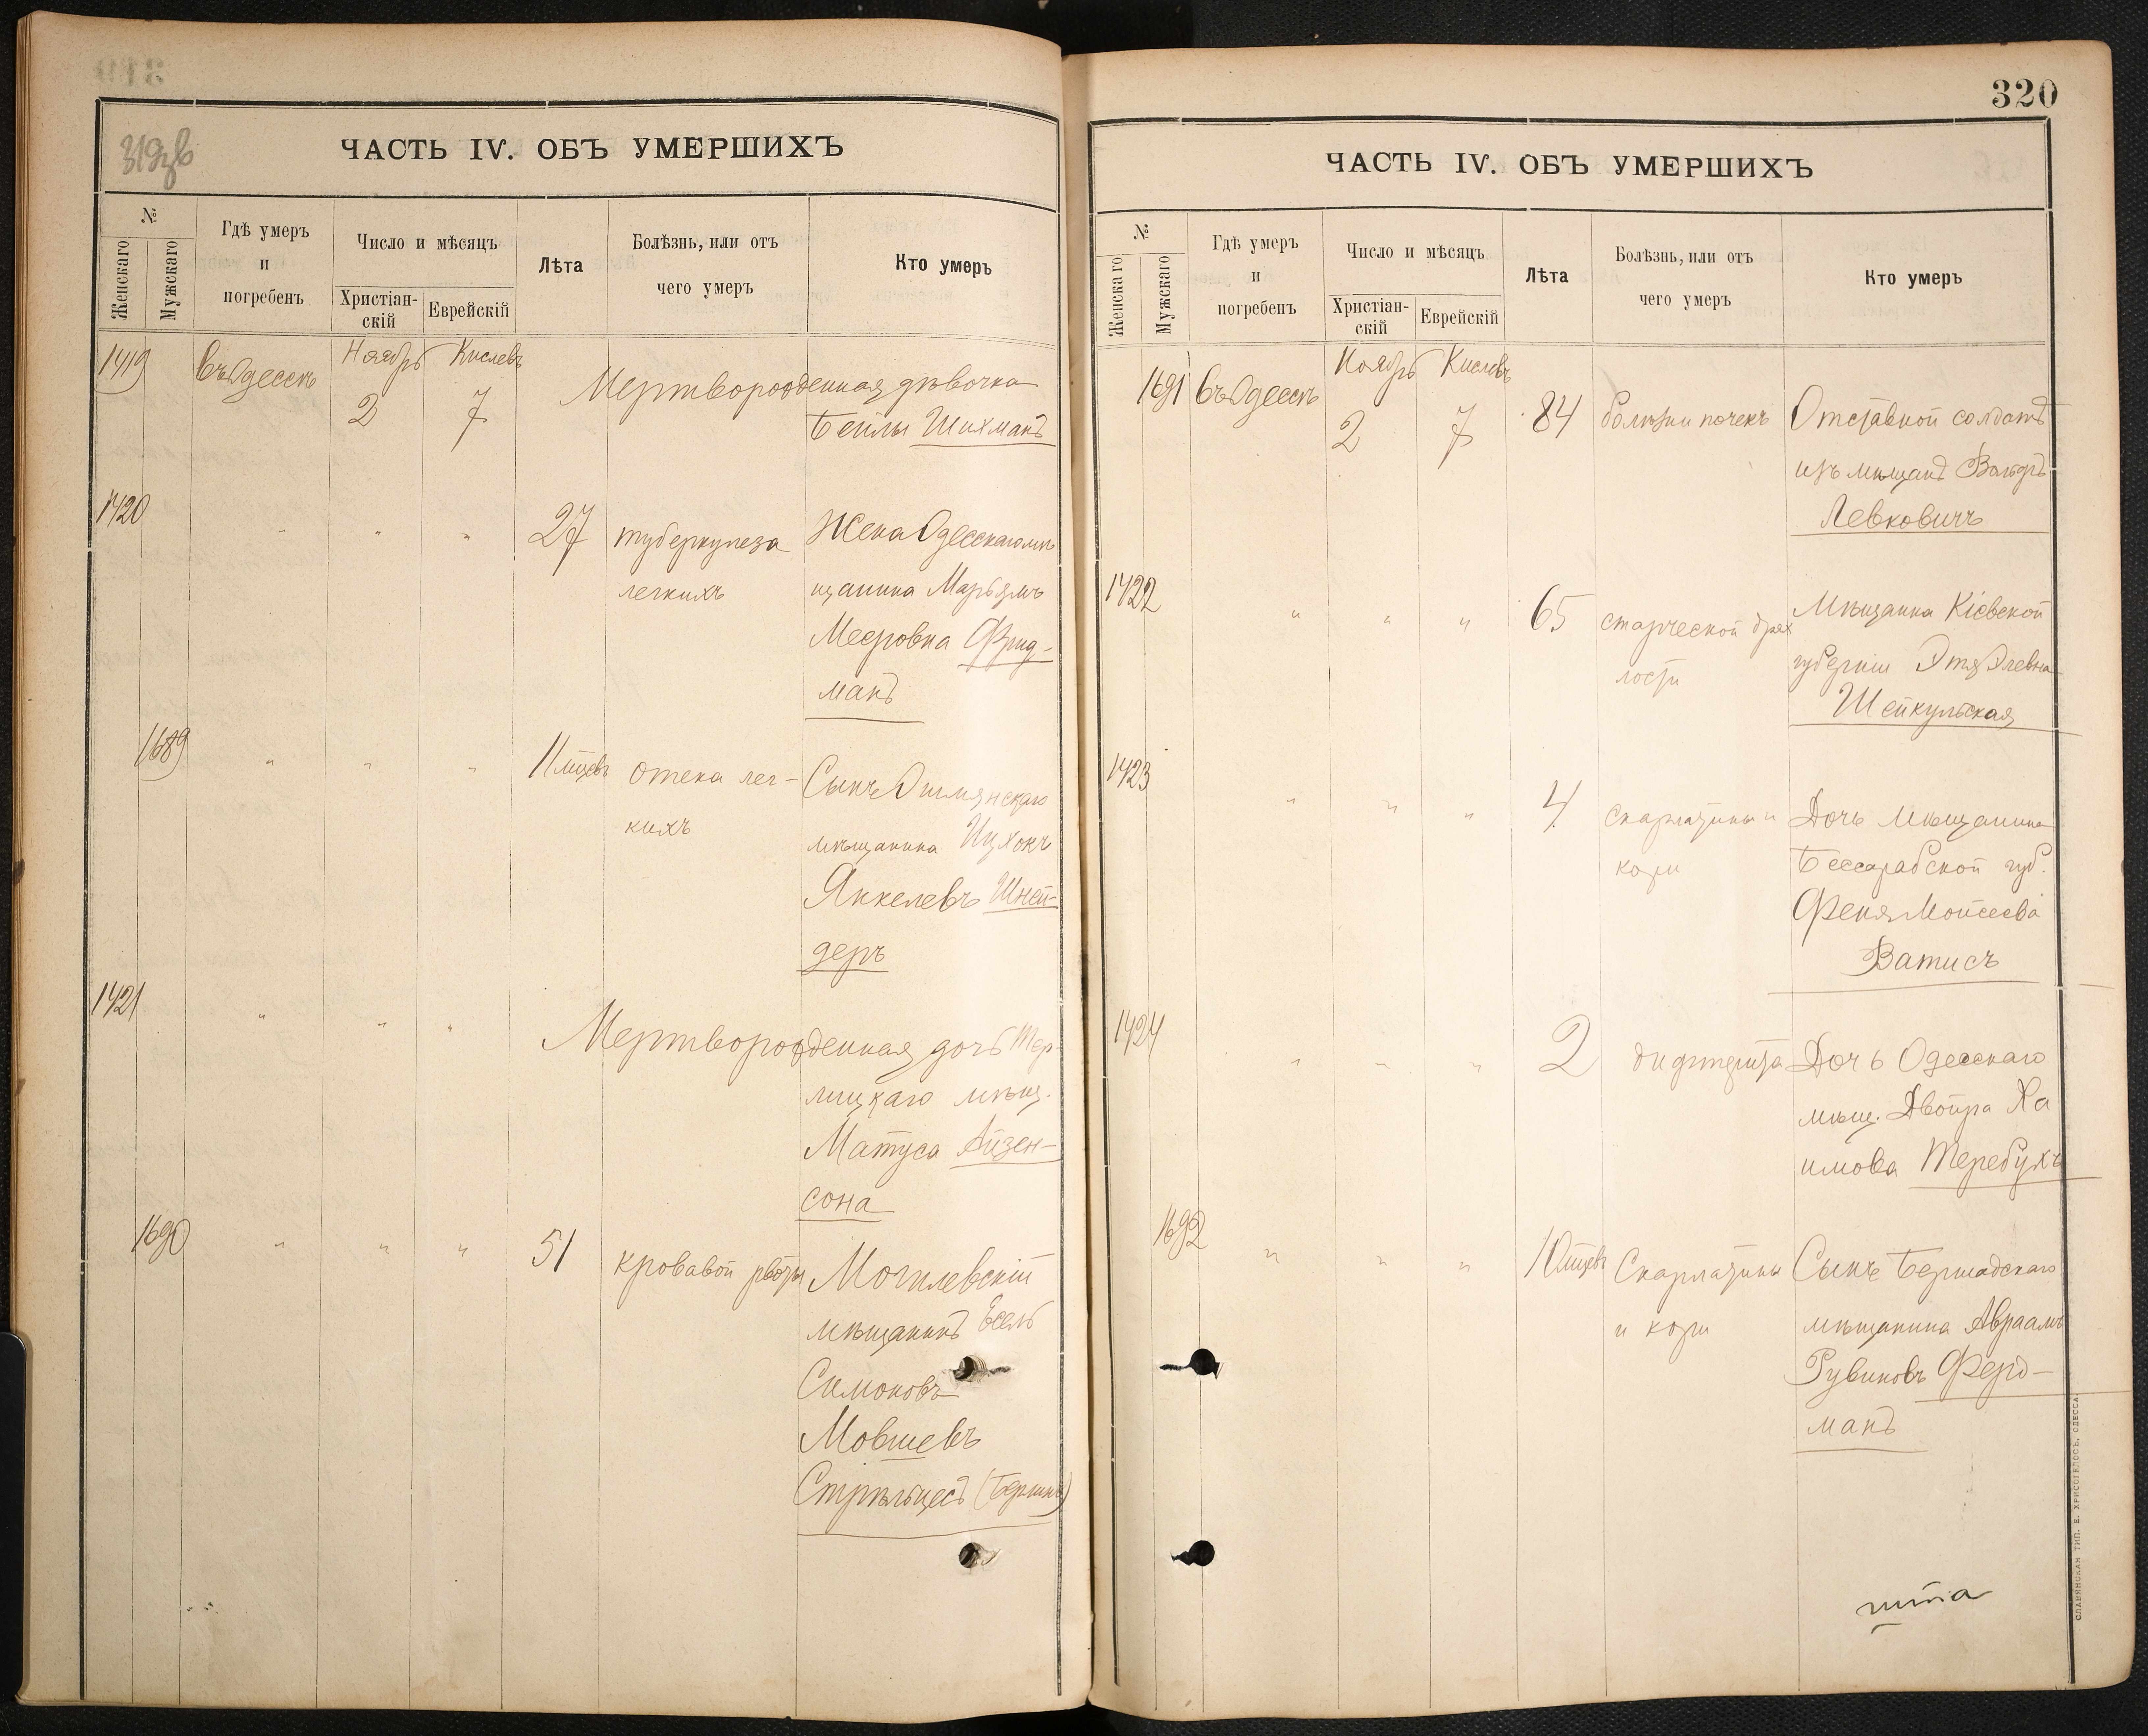 ЧАСТЬ IV. ОБЪ УМЕРШИХЪ
№
Женскаго
Мужскаго
Гдѣ умеръ
и
погребенъ
Число и мѣсяцъ
Христіан-
скій
Еврейскій
Лѣта
Болѣзнь, или отъ
чего умеръ
Кто умеръ
1419
въ Одессѣ
Ноябрь
2
Кислевъ
7
Мертворожденная дѣвочка
Бейлы Шихманъ
1420
" " "
27
туберкулеза
легкихъ
Жена Одесскаго мѣ
щанина Марьямъ
Мееровна Фрид-
манъ
1689
" " "
11 мцевъ
отека лег-
кихъ
Сынъ
мѣщанина Ицхокъ
Янкелевъ Шней-
деръ
1421
" " "
Мертворожденная дочь
мѣщ.
Матуса Айзен-
сона
1690
" " "
51
кровавой рвоты
Могилевскій
мѣщанинъ
Симоновъ
Мовшевъ
Стрѣльцесъ
320
ЧАСТЬ IV. ОБЪ УМЕРШИХЪ
№
Женскаго
Мужскаго
Гдѣ умеръ
и
погребенъ
Число и мѣсяцъ
Христіан-
скій
Еврейскій
Лѣта
Болѣзнь, или отъ
чего умеръ
Кто умеръ
1691
въ Одессѣ
Ноябрь
2
Кислевъ
7
84
болѣзни почекъ
Отставной солдатъ
изъ мѣщанъ Вольфъ
Левковичъ
1422
" " "
65
старческой дрях
лости
Мѣщанка Кіевской
губерніи Этя Элевна
Шейкульская
1423
" " "
4
скарлатины и
кори
Дочь мѣщанина
Бессарабской губ.
Феня Мойсеева
Ватисъ
1424
" " "
2
дифтерита
Дочь Одесскаго
мѣщ. Двойра Ха
имова Теребухъ
1692
" " "
10 мцевъ
Скарлатины
и кори
Сынъ Бершадскаго
мѣщанина Авраамъ
Рувиновъ Ферд-
манъ
СЛАВЯНСКАЯ ТИП. Е. ХРИСОГЕЛОСЪ, ОДЕССА.